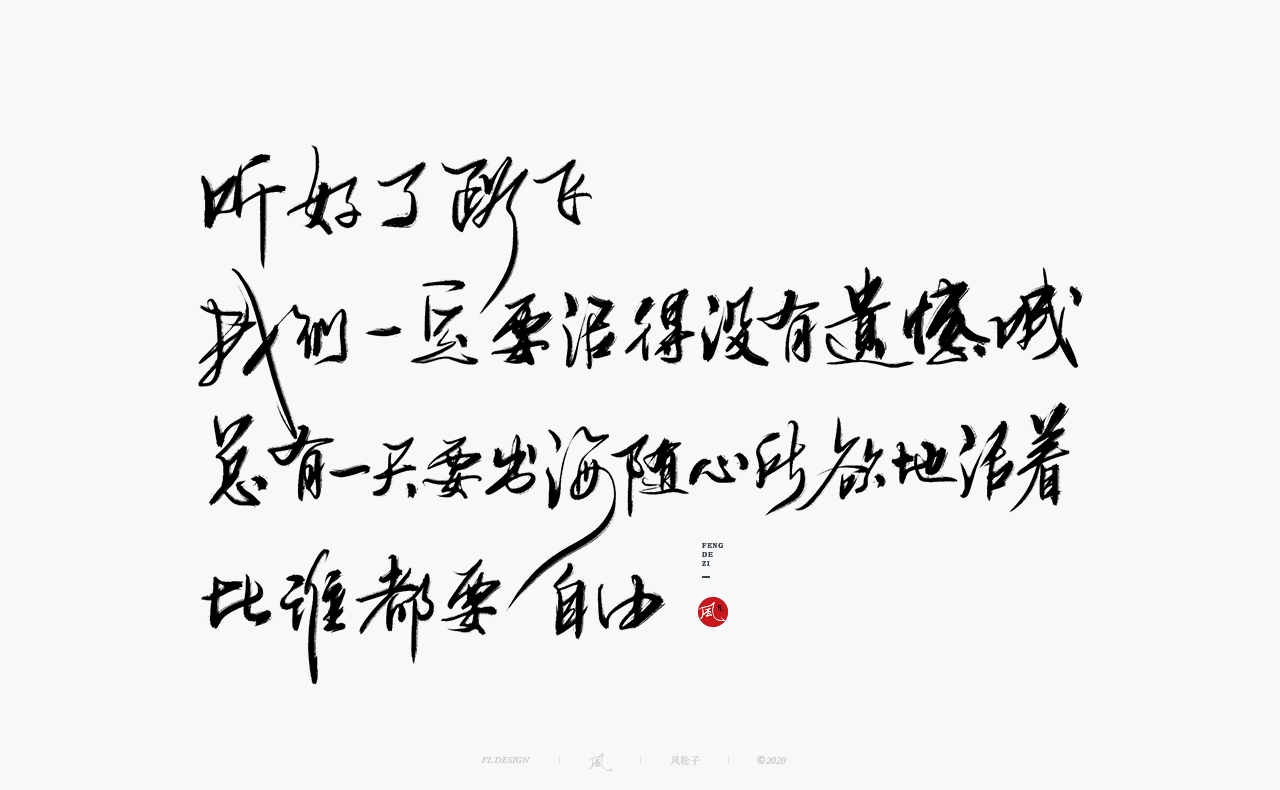 听好了路飞
我们一定要活得没有遗憾喊
总有一天要出海随心所欲地活着
比谁都要自由
FENG
DE
ZI
風
FL.DESIGN 風 风轮子 ©2020